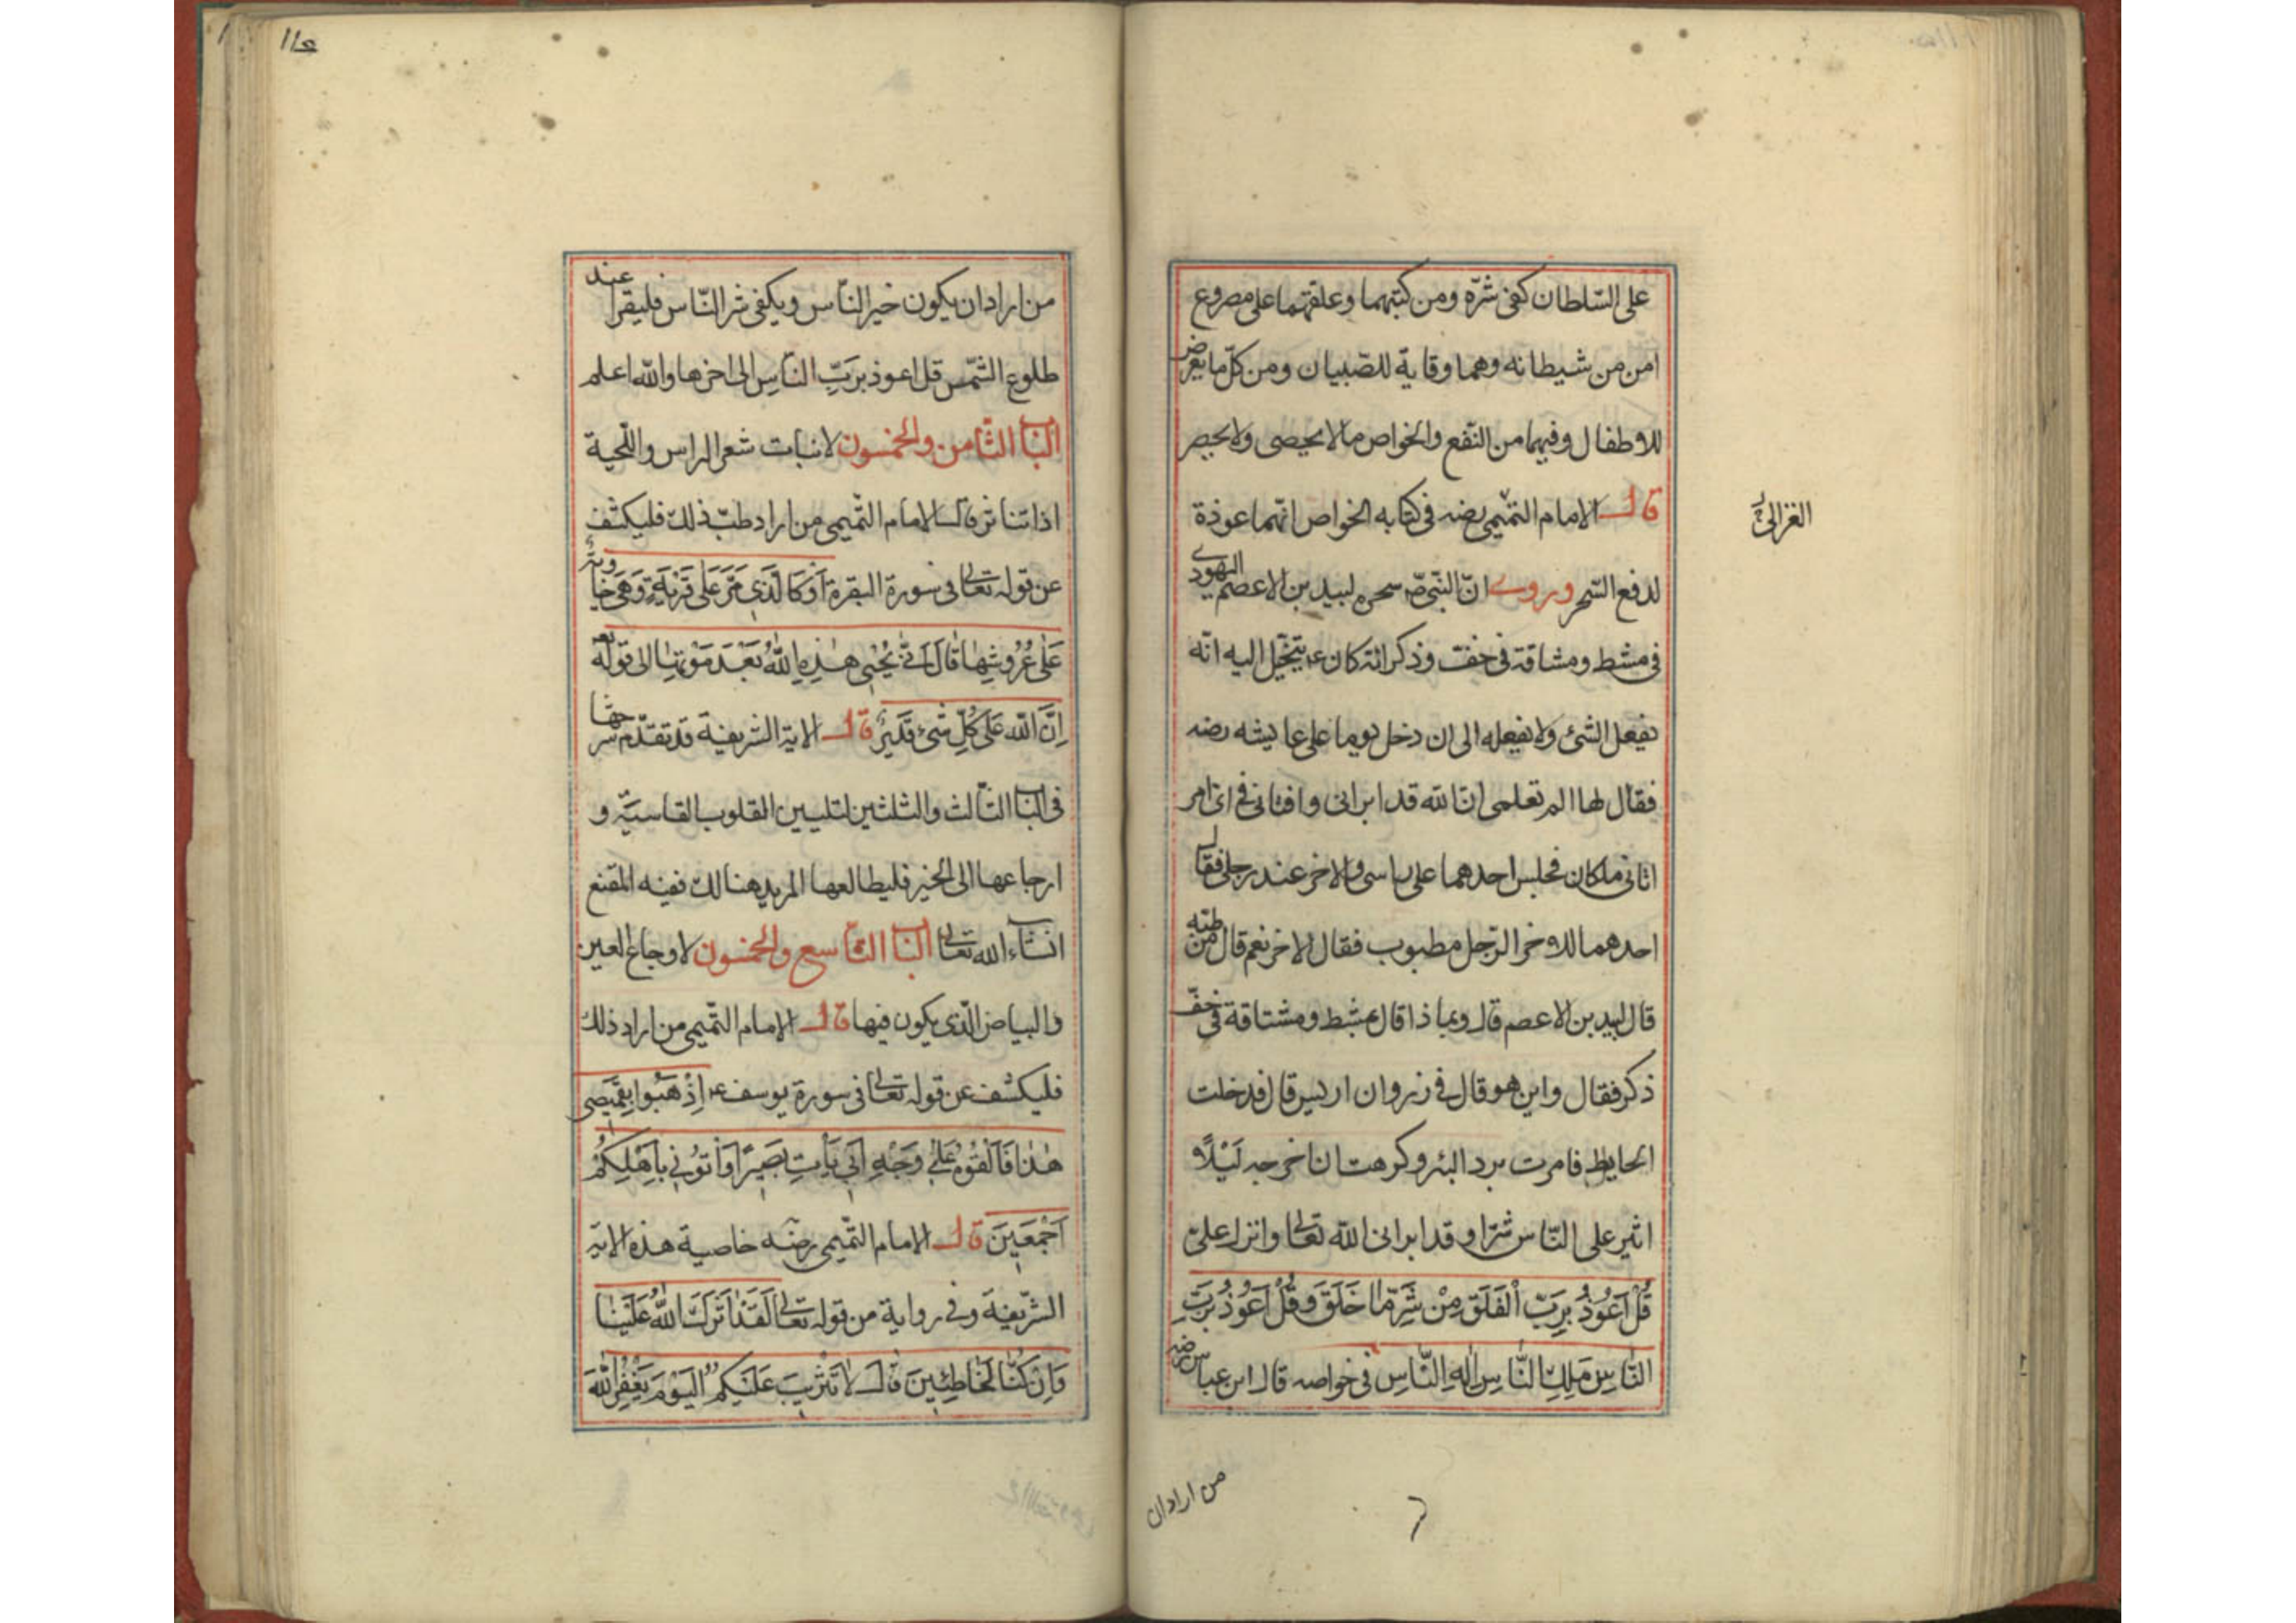 على السّلطان كفى شرّه ومن كتبهما وعلقهما على مصروع
امن من شيطانه وهما وقاية للصّبيان ومن كلّ ما يعرض
للاطفال وفيهما من النّفع والخواص مالا يحصى ولا يحصر
قال الامام التّميمى رضه فى كتابه الخواص انّهما عوذة
الغزالى
لدفع السّحر وروى انّ النّبىّ صّ سحره لبيد بن الاعصم اليهودى
فى مشط ومشاقة فى جفّ وذكر انّه كان يتخيّل اليه انّه
يفعل الشئ ولا يفعله الى ان دخل يوما على عايشه رضه
فقال لها الم تعلمى انّ الله قد ابرانى وافتانى فى امر
اتانى ملكان فجلس احدهما على راسى والاخر عند رجلى فقال
احدهما للاخر الرّجل مطبوب فقال الاخر نعم قال من طبّه
قال لبيد بن الاعصم قال وبماذا قال بمشط ومشتاقة فى خفّ
ذكر فقال واين هو قال فى زروان اريس قال فدخلت
الحايط فامرت برد البئر وكرهت ان اخرجه لَيْلاً
اثير على النّاس شرّا وقد ابرانى الله تعالى وانزل علىّ
قُلْ اَعُوذُ بِرَبِّ الْفَلَقِ مِنْ شَرِّ مَا خَلَقَ وَقُلْ اَعُوذُ بِرَبِّ
النَّاسِ مَلِكِ النَّاسِ اِلٰهِ النَّاسِ فى خواصه قال ابن عباس رضه
من اراد ان
١١٥
من اراد ان يكون خير النّاس ويكفى شر النّاس فليقرا عند
طلوع الشّمس قل اعوذ بربِّ النّاسِ الى اخرها والله اعلم
الباب الثّامن والخمسون لانبات شعر الراس واللّحية
اذا تناثر قال الامام التّميمى من اراد طبّ ذلك فليكشف
عن قوله تعالى فى سورة البقرة اَوْ كَالَّذى مَرَّ عَلى قَرْيَةٍ وَهِىَ خَاوِيَة
عَلٰى عُرُوشِهَا قَالَ اَنّى يُحْيِى هٰذِهِ اللّٰهُ بَعْدَ مَوْتِهَا الى قوله تعه
اِنَّ اللّٰه عَلى كُلِّ شَىْءٍ قَدِيرٌ قال الاية الشريفة قد تقدّم شرحها
فى الباب الثّالث والثلثين لتليين القلوب القاسيّة و
ارجاعها الى الخير فليطالعها المريد هنالك ففيه المقنع
انشاء الله تعالى الباب التّاسع والخمسون لاوجاع العين
والبياض الّذى يكون فيها قال الامام التّميمى من اراد ذلك
فليكشف عن قوله تعالى فى سورة يوسف ع اِذْهَبُوا بِقَمِيصى
هٰذَا فَاَلْقُوهُ عَلٰى وَجْهِ اَبى يَأْتِ بَصِيرًا وَأْتُونى بِاَهْلِكُمْ
اَجْمَعِينَ قال الامام التّميمى رضه خاصية هذه الاية
الشّريفة وفى رواية من قوله تعالى لَقَدْ اٰثَرَكَ اللّٰهُ عَلَيْنَا
وَاِنْ كُنَّا لَخَاطِئِينَ قَالَ لَا تَثْرِيبَ عَلَيْكُمُ الْيَوْمَ يَغْفِرُ اللّٰهُ